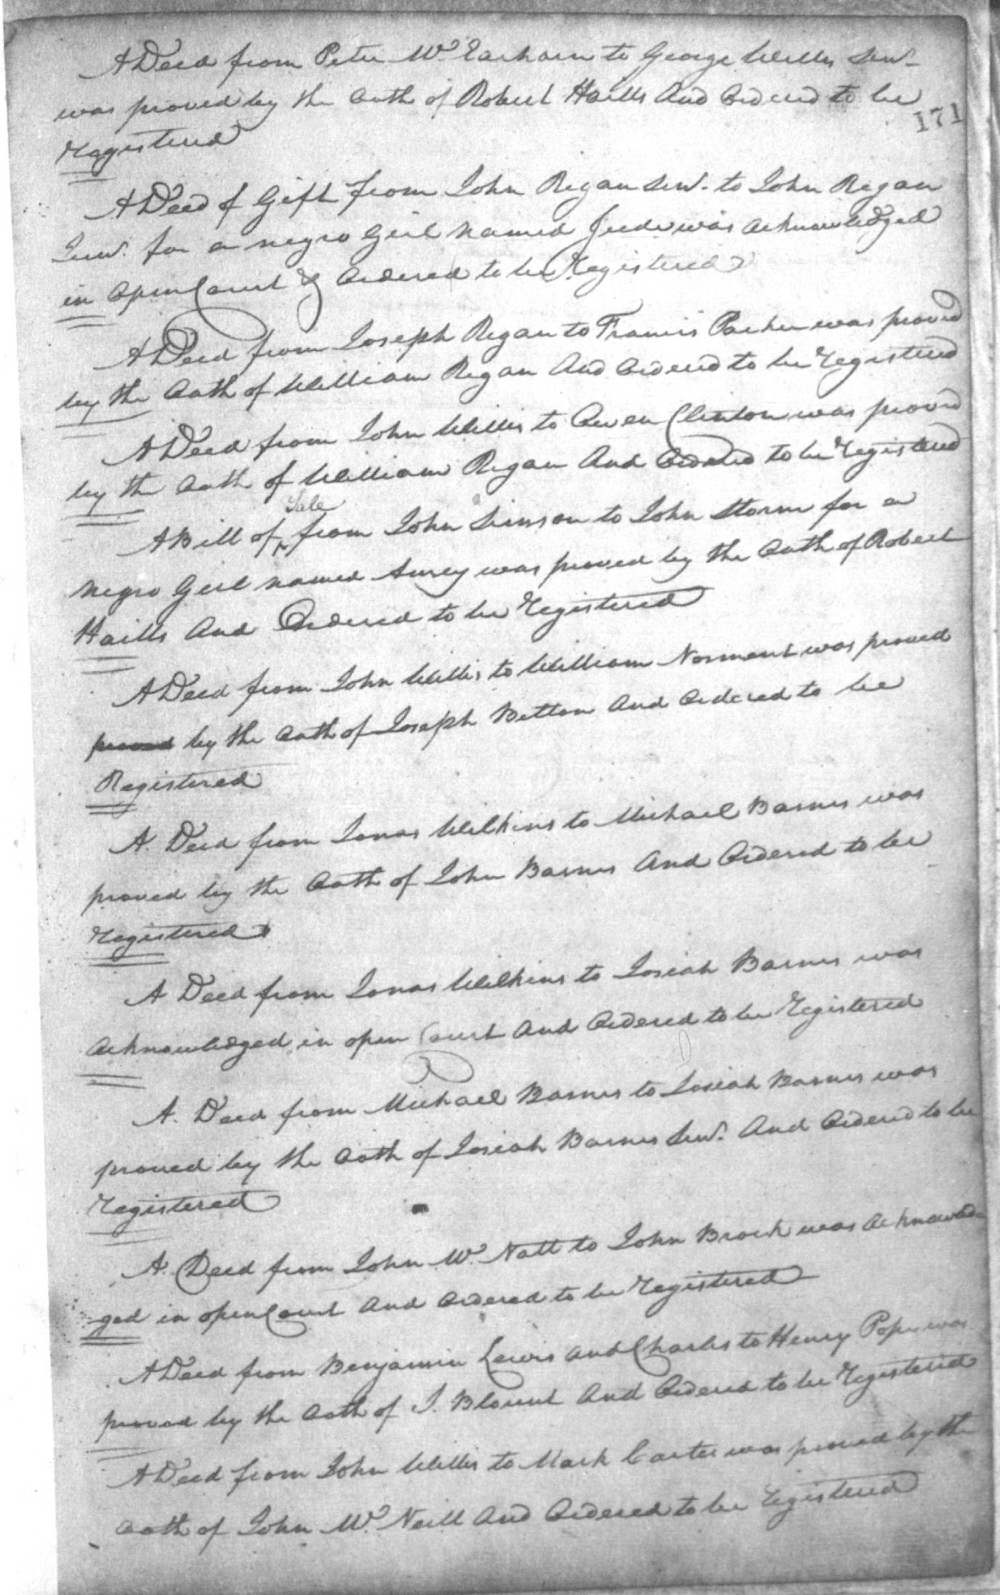 A Deed from Peter Mc Eachern to George Willis Senr.
was proved by the Oath of Robert Hails And Ordered to be
171
registered
A Deed of Gift from John Regan Senr. to John Regan
Junr. for a negro Girl named Jude was acknowledged
in Open Court & Ordered to be Registered
A Deed from Joseph Regan to Francis Parker was proved
by the Oath of William Regan And Ordered to be Registered
A Deed from John Willis to Owen Clinton was proved
by the Oath of William Regan And Ordered to be Registered
Sale
A Bill of from John Simson to John Storm for a
negro Girl named was proved by the Oath of Robert
Hails And Ordered to be Registered
A Deed from John Willis to William Norment was proved
proved by the Oath of Joseph Betton And Ordered to be
Registered
A. Deed from Jonas Wilkins to Michael Barnes was
proved by the Oath of John Barnes And Ordered to be
registered
A Deed from Jonas Wilkins to Josiah Barnes was
acknowledged in open Court And Ordered to be Registered
A. Deed from Michael Barnes to Josiah Barnes was
proved by the Oath of Josiah Barnes Senr. And Ordered to be
registered
A. Deed from John Mc Natt to John Brock was acknowled-
ged in open Court And Ordered to be Registered
A Deed from Benjamin Lewis and Charles to Henry Pope was
proved by the Oath of J. Blount And Ordered to be Registered
A Deed from John Willis to Mark Carter was proved by the
Oath of John Mc Neill And Ordered to be registered